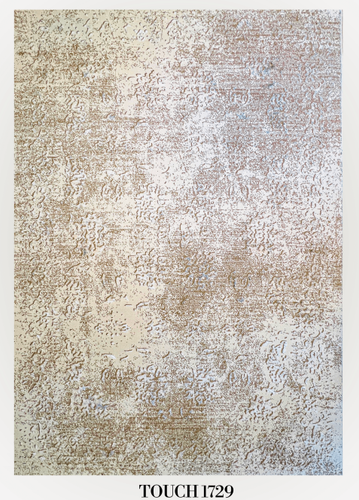 TOUCH 1729